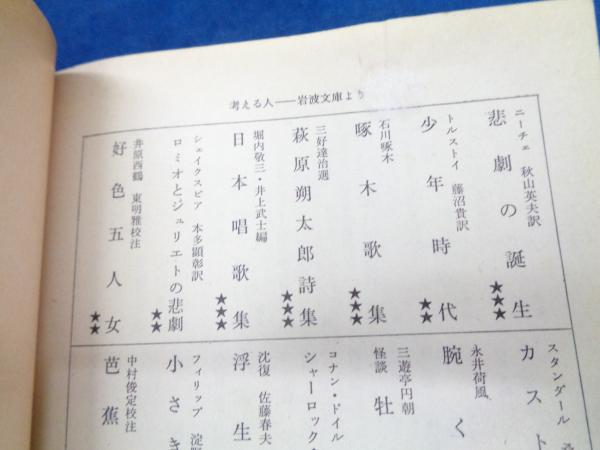 考える人――岩波文庫より
ニーチェ 秋山英夫訳
悲劇の誕生 ★★★
トルストイ 藤沼貴訳
少年時代 ★★
石川啄木
啄木歌集 ★★★
三好達治選
萩原朔太郎詩集 ★★★
堀内敬三・井上武士編
日本唱歌集 ★★★
シェイクスピア 本多顕彰訳
ロミオとジュリエトの悲劇 ★★
井原西鶴 東明雅校注
好色五人女 ★★
スタンダール
カスト
永井荷風
腕く
三遊亭円朝
怪談 牡
コナン・ドイル
シャーロック・
沈復 佐藤春夫
浮生
フィリップ 淀野
小さき
中村俊定校注
芭蕉